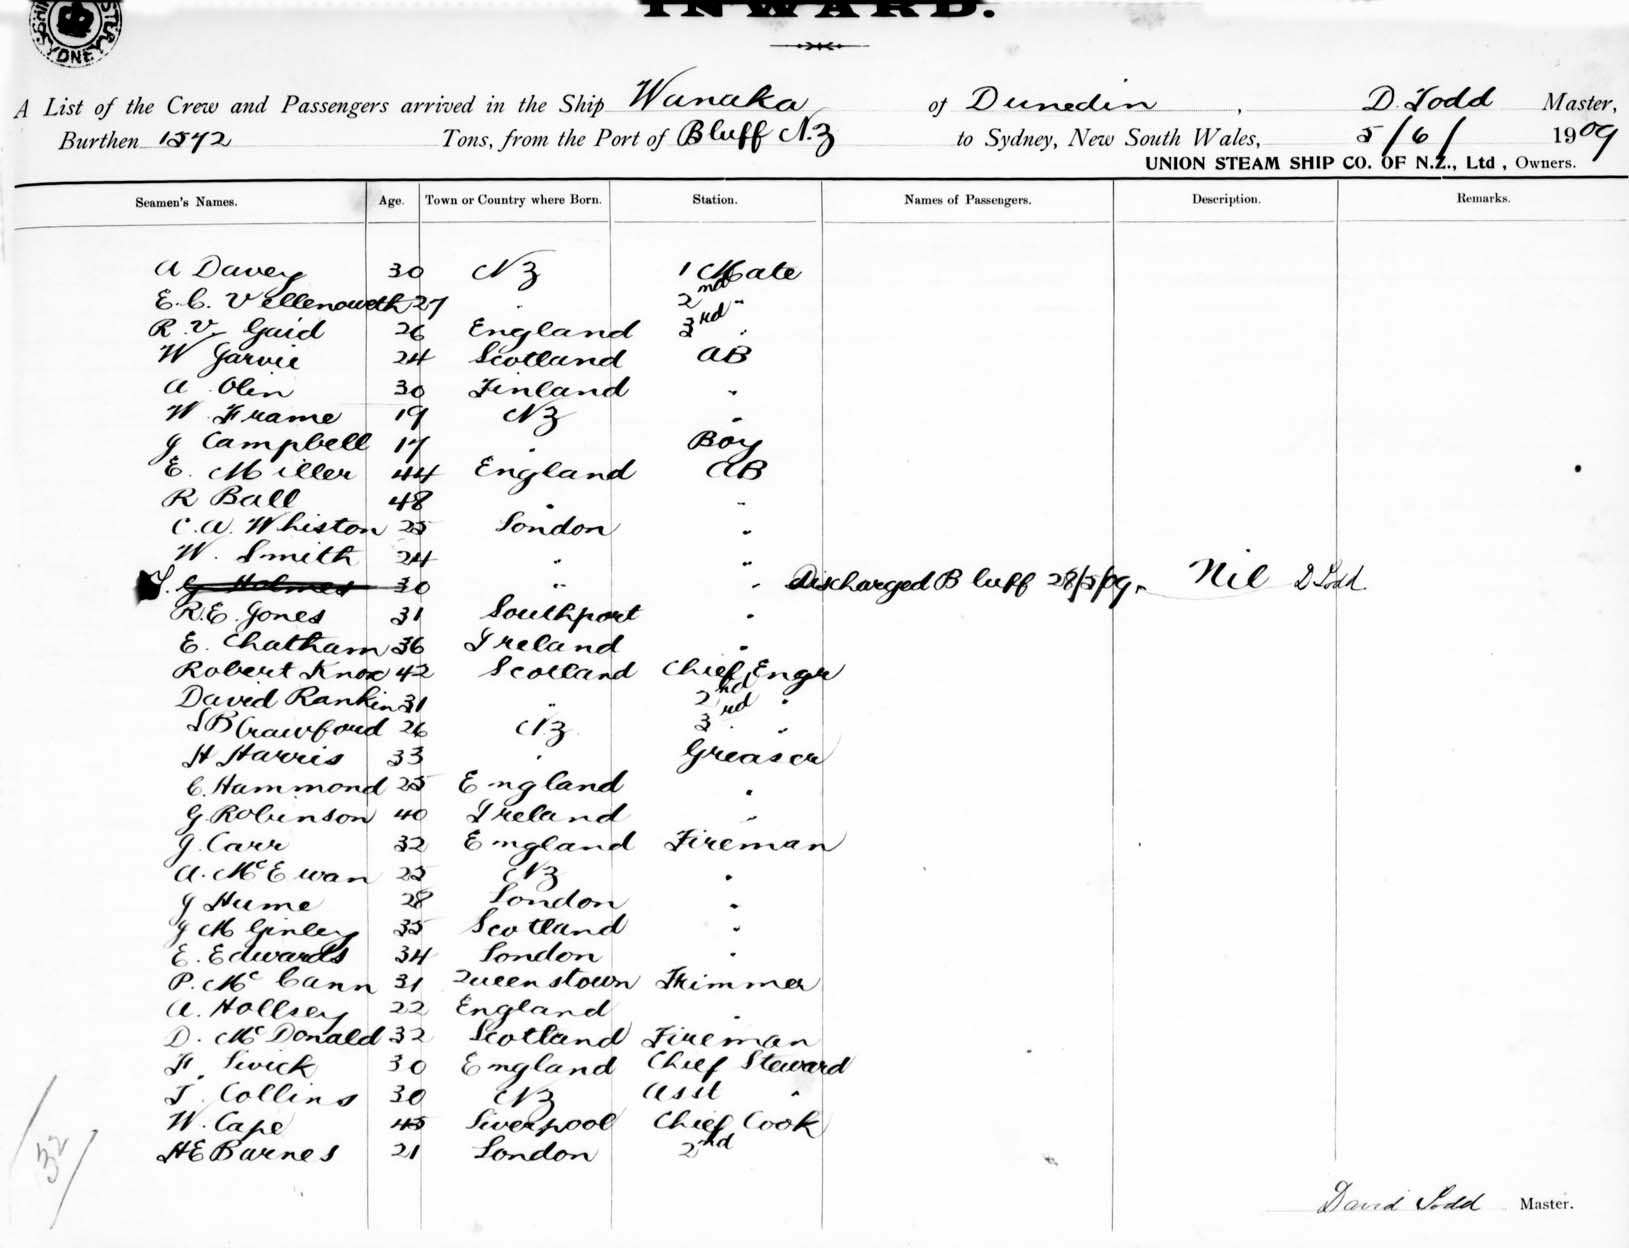 SYDNEY
INWARD.
A List of the Crew and Passengers arrived in the Ship Wanaka of Dunedin, D. Todd Master,
Burthen 1572 Tons, from the Port of Bluff N.Z to Sydney, New South Wales, 5/6/ 1909
UNION STEAM SHIP CO. OF N.Z., Ltd, Owners.
Seamen's Names. Age. Town or Country where Born. Station. Names of Passengers. Description. Remarks.
A Davey 30 NZ 1 Mate
E. C. Vellenoweth 27 " 2nd "
R. V. Guid 26 England 3rd "
W Jarvie 24 Scotland AB
A Olin 30 Finland "
W. Frame 19 NZ "
J Campbell 17 " Boy
E. Miller 44 England AB
R Ball 48 " "
C. A. Whiston 25 London "
W. Smith 24 " "
G Holmes 30 " " Discharged Bluff 28/5/09. Nil D Todd
R. E. Jones 31 Southport "
E. Chatham 36 Ireland "
Robert Knox 42 Scotland Chief Engr
David Rankin 31 " 2nd "
S B Crawford 26 NZ 3rd "
H Harris 33 " Greaser
C. Hammond 25 England "
G Robinson 40 Ireland "
J. Carr 32 England Fireman
A. McEwan 25 NZ "
J Hume 28 London "
J M Ginley 35 Scotland "
E. Edwards 34 London "
P. McCann 31 Queenstown Trimmer
A. Hollsey 22 England "
D. McDonald 32 Scotland Fireman
F. Sivick 30 England Chief Steward
T. Collins 30 NZ Asst "
W. Cape 45 Liverpool Chief Cook
H E Barnes 21 London 2nd
32
David Todd Master.